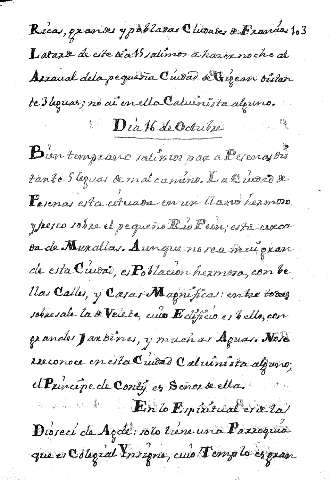 Ricas, grandes y pobladas Ciudades de Francia. 103
La tarde de este dia 15 salimos a hazer noche al
Arraval de la pequeña Ciudad de Gigean distan
te 3 leguas; no ai en ella Calvinista alguno.
Dia 16 de Octubre
Bien temprano salimos para Pesenas dis
tante 5 leguas de mal camino. La Ciudad de
Pesenas esta situada en un llano hermoso
y fresco sobre el pequeño Rio Pein; està cerca
da de Murallas. Aunque no sea mui gran
de esta Ciudad, es Poblacion hermosa, con be
llas Calles, y Casas Magnificas: entre todas
sobresale la de Veiete, cuio Edificio es bello, con
grandes Jardines, y muchas Aguas. No se
reconoce en esta Ciudad Calvinista alguno;
el Principe de Conty es Señor de ella.
En lo Espiritual es de la
Diosesi de Agde: solo tiene una Parroquia
que es Colegial Ynsigne, cuio Templo es gran